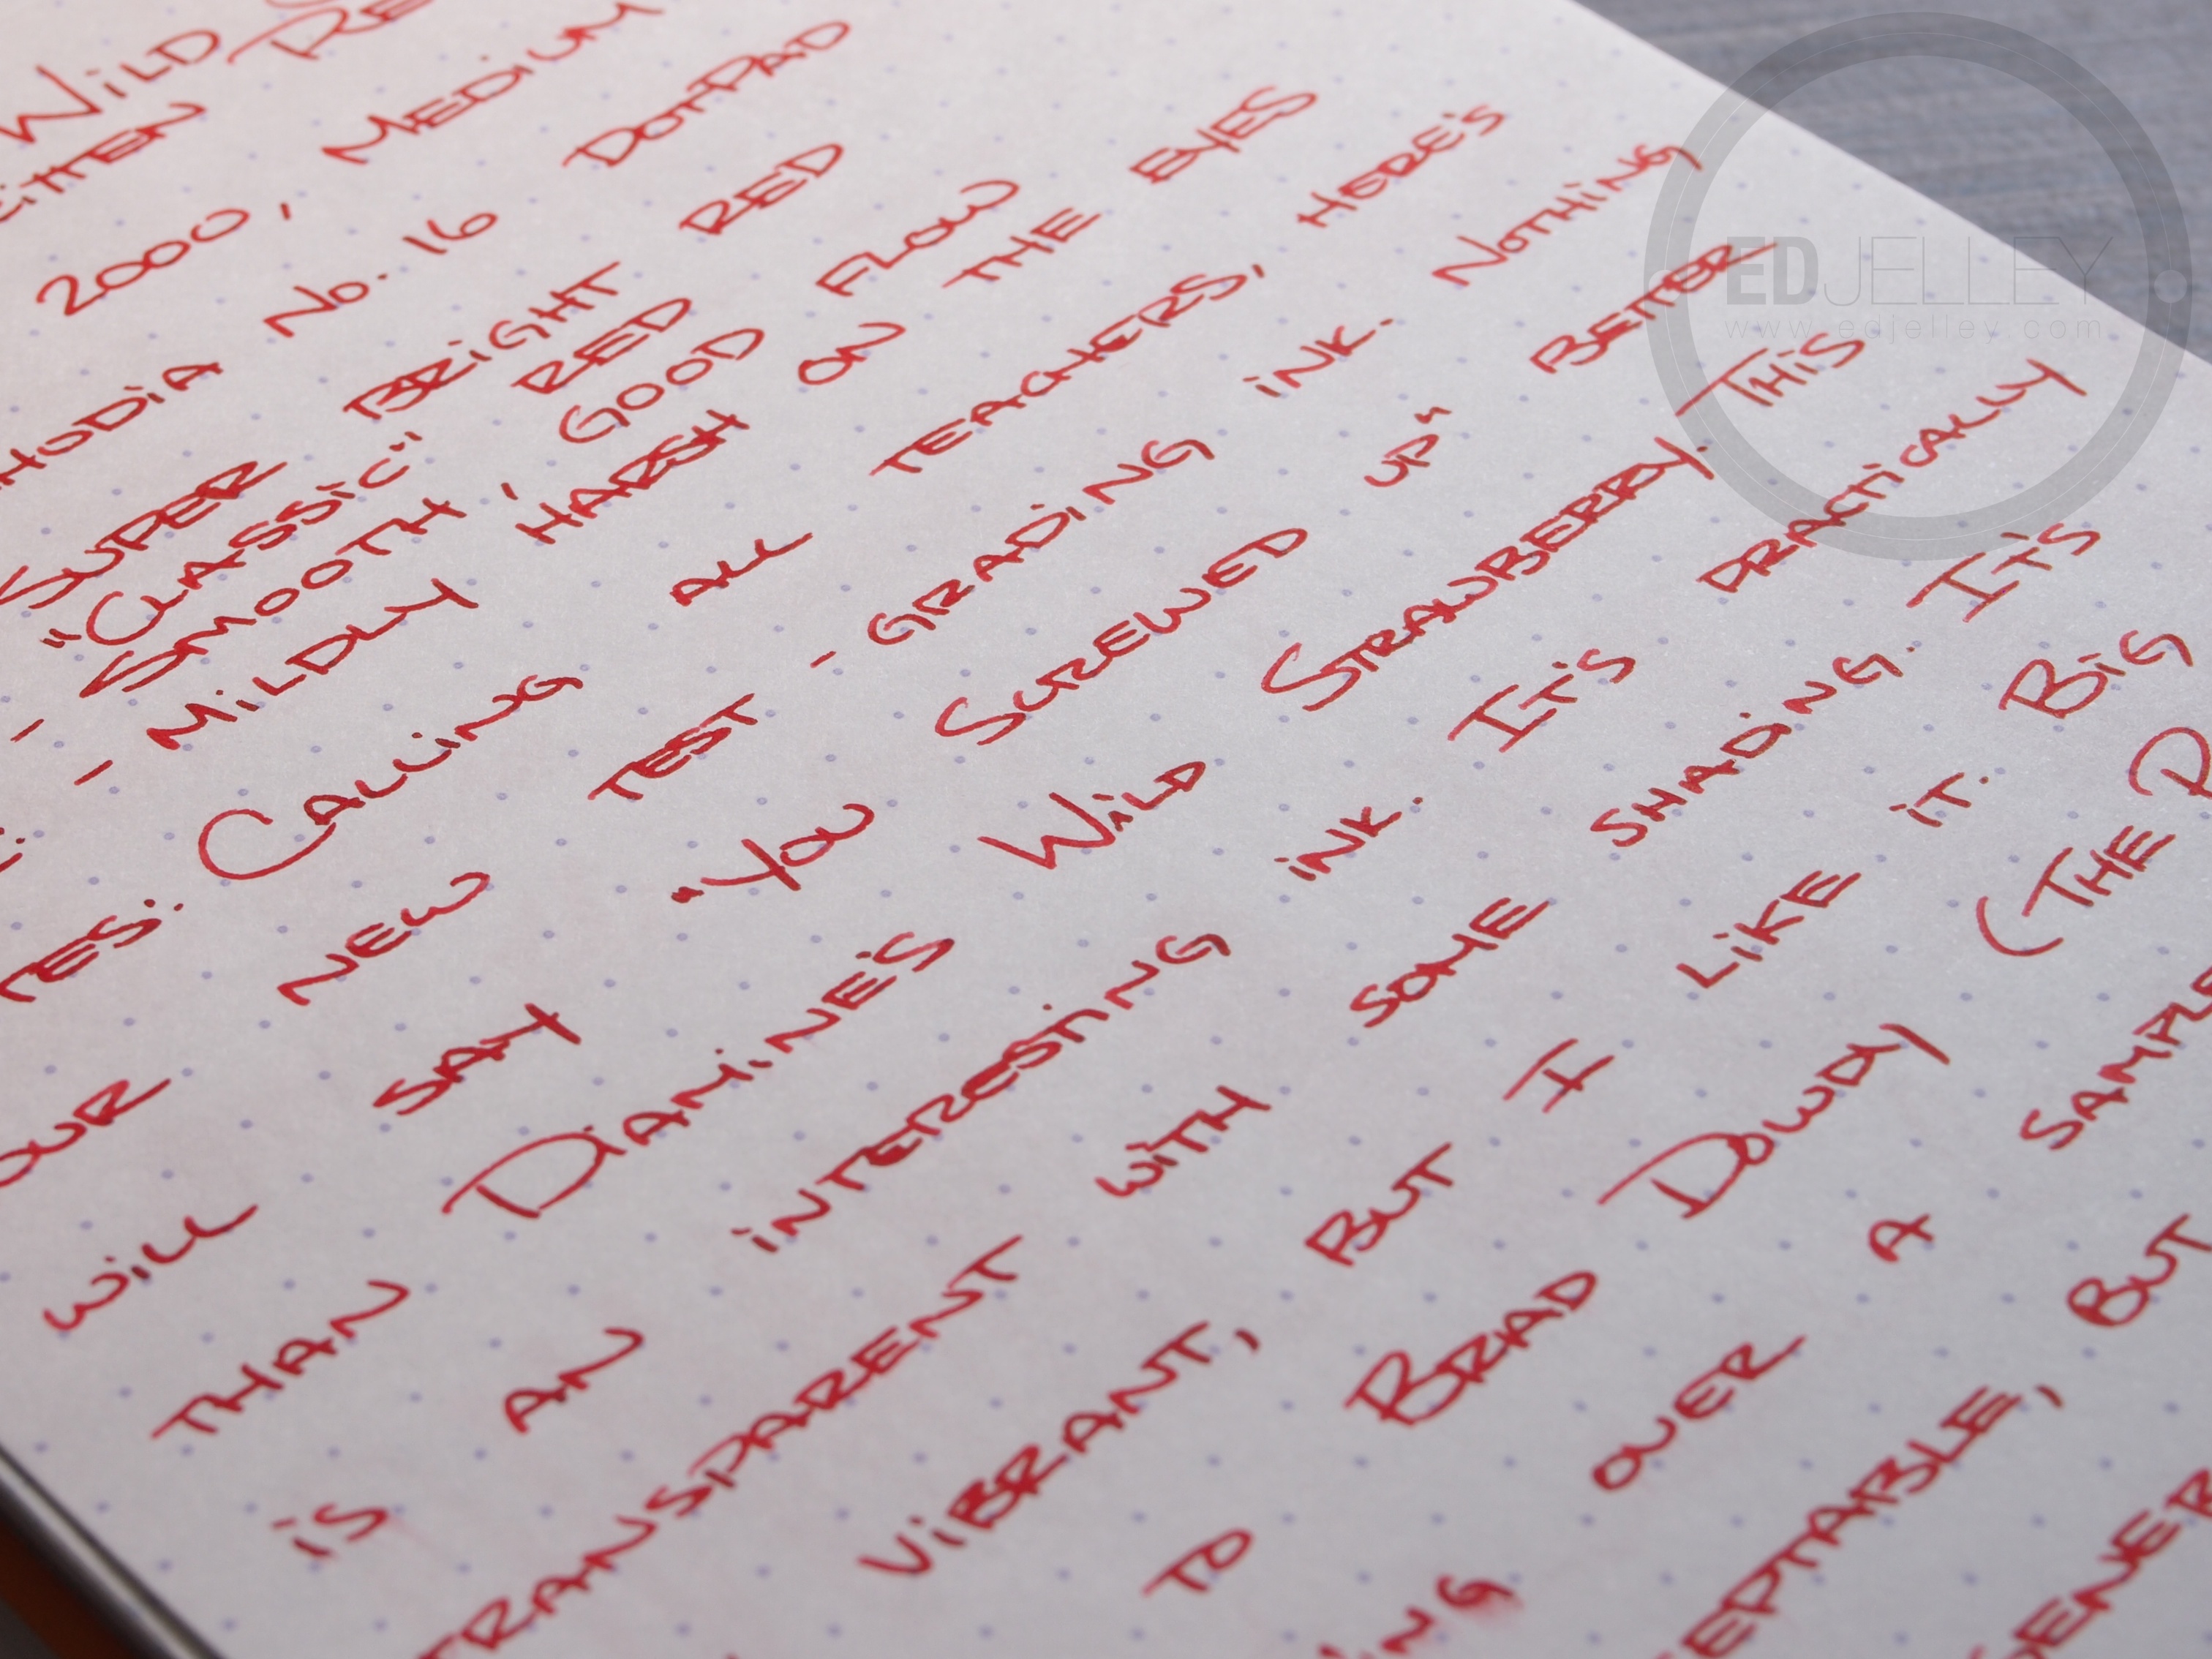 Wild
2000, Medium
No. 16 DotPad
Super Bright Red
"Classic" Red
- Smooth, Good Flow
- Mildly harsh on the eyes
Calling all teachers, here's
our new test-grading ink. Nothing
will say "You screwed up" better
than Diamine's Wild Strawberry. This
is an interesting ink. It's practically
transparent with some shading. It's
vibrant, but I like it. Big
to Brad Dowdy (The
over a sample
but
EDJELLEY
www.edjelley.com